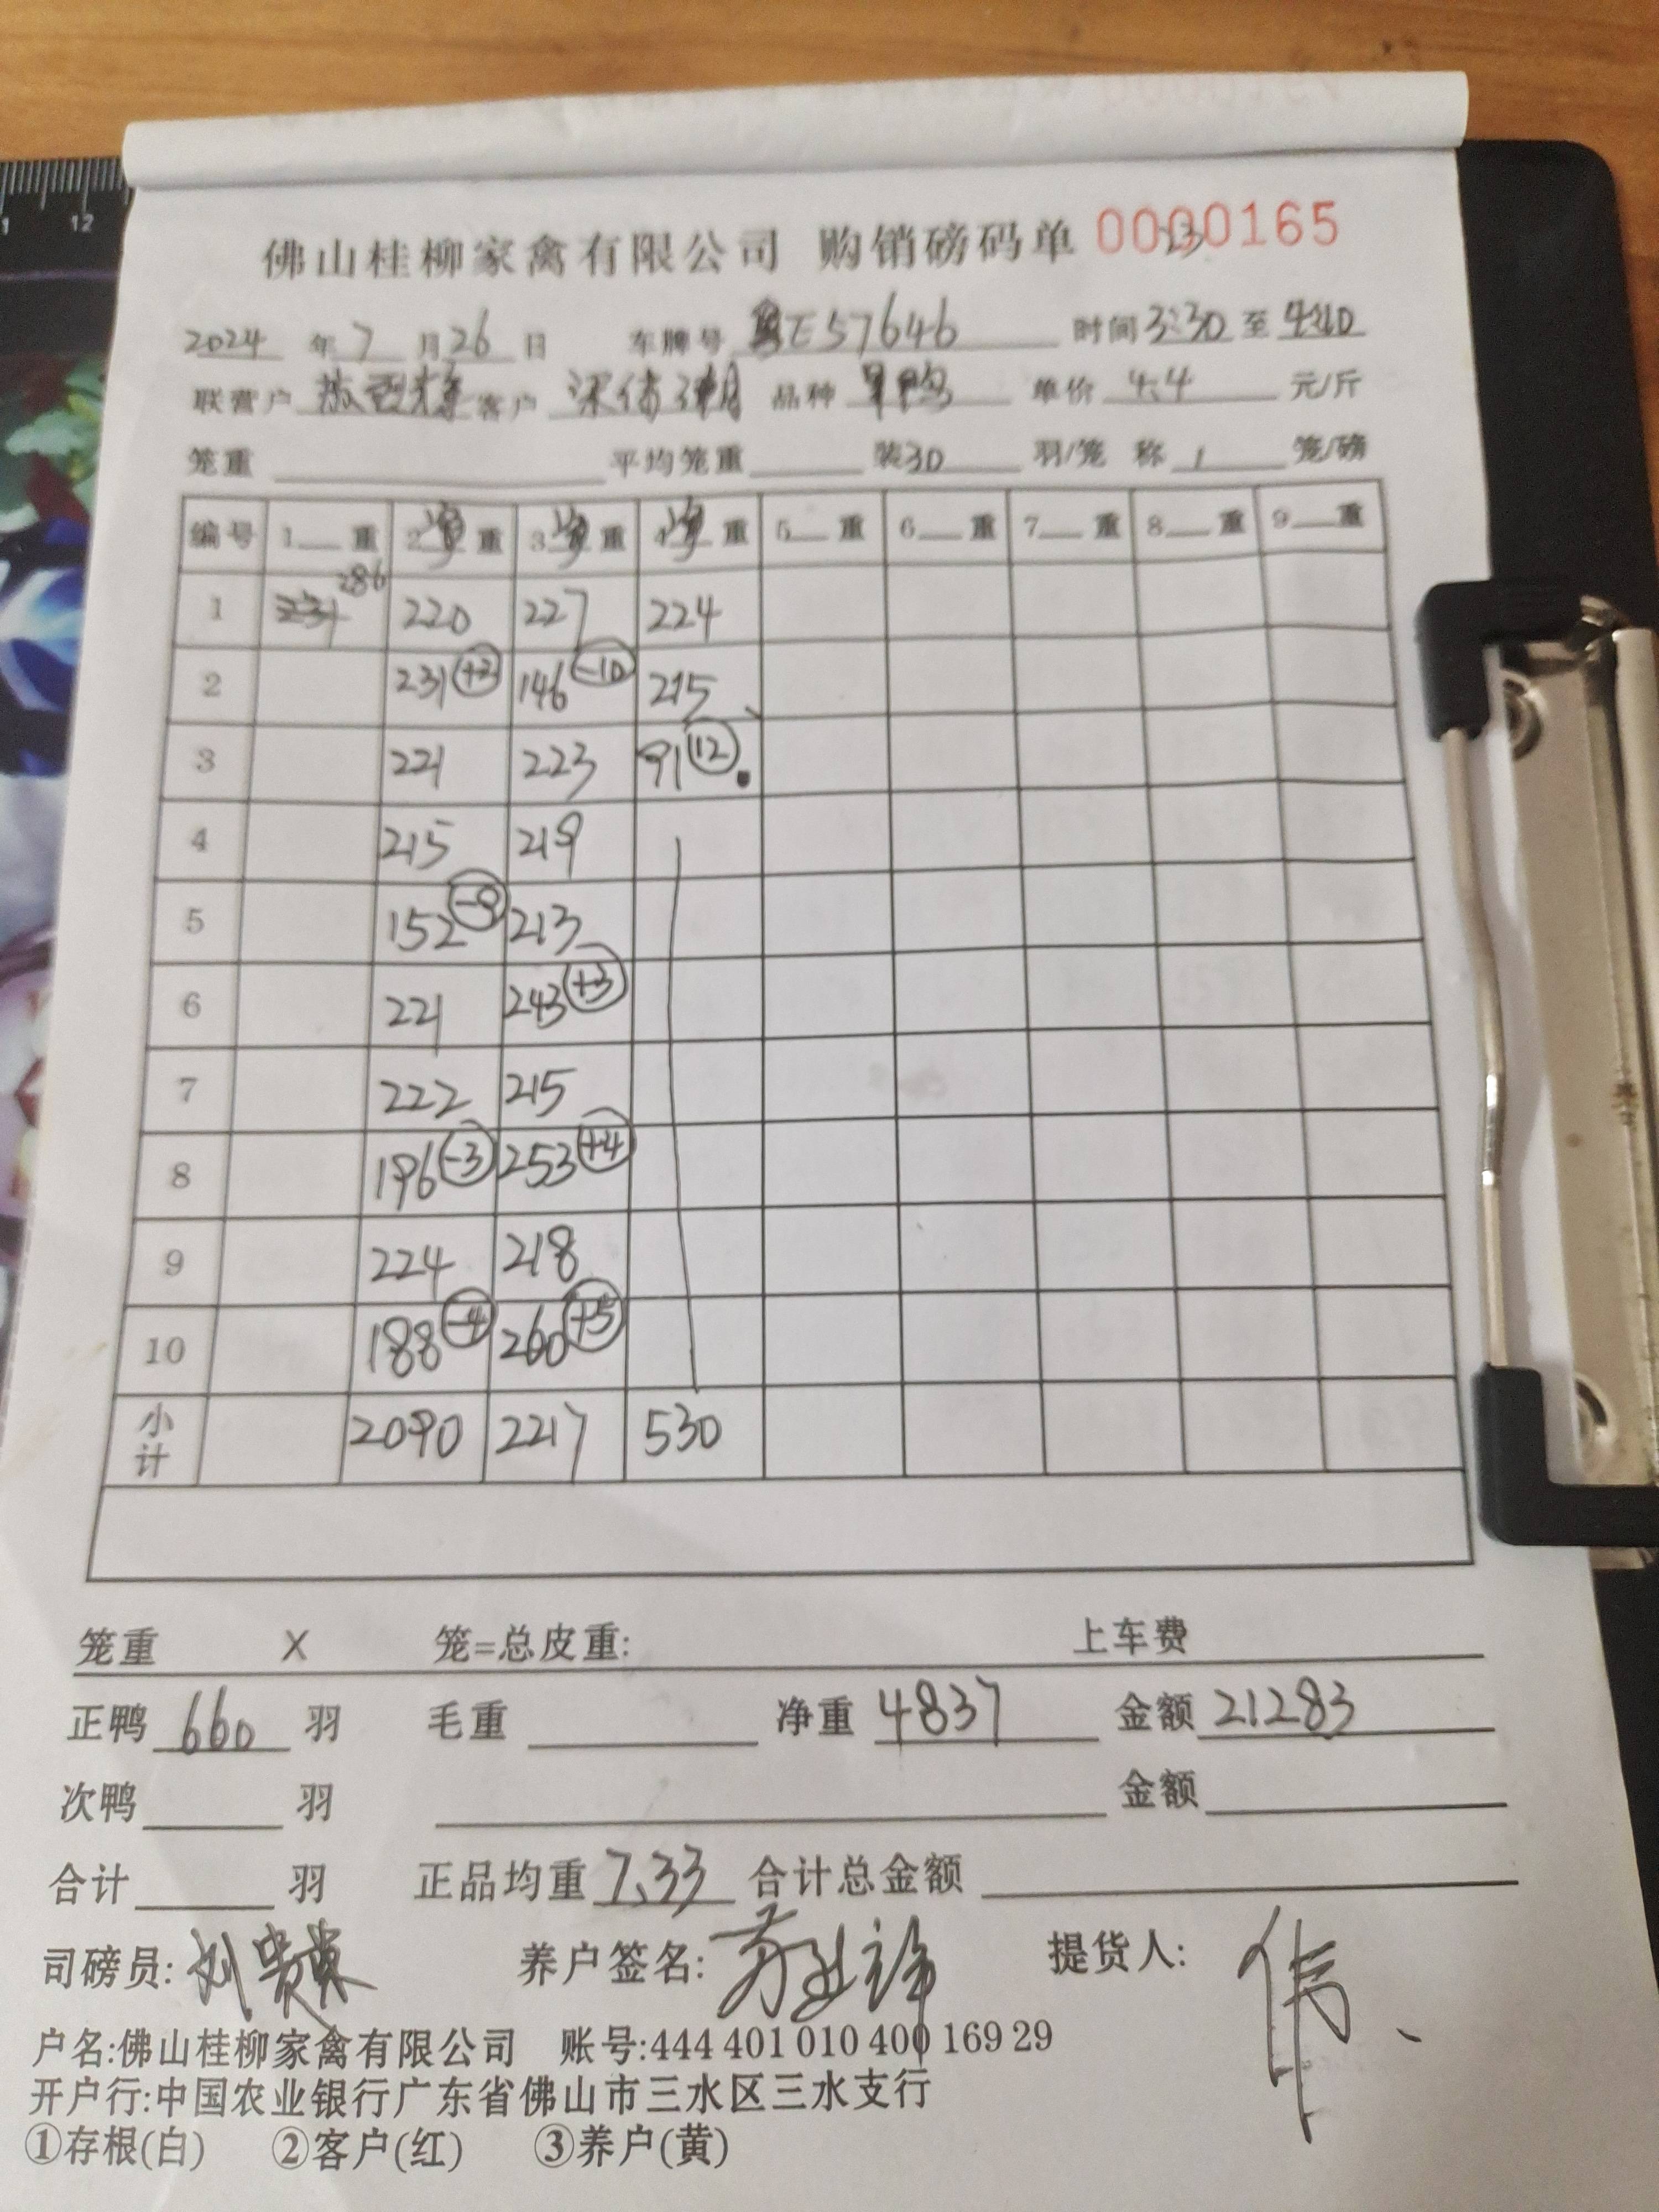 佛山桂柳家禽有限公司 购销磅码单 0000165
23
2024 年 7 月 26 日 车牌号 粤E57646 时间 3:30 至 4:10
联营户 客户 品种 单价 4.4 元/斤
笼重 平均笼重 装30 羽/笼 称 1 笼/磅
编号 1 重 2 重 3 重 4 重 5 重 6 重 7 重 8 重 9 重
286
1 231 220 227 224
2 231 +2 146 -10 215
3 221 223 91 12
4 215 219
5 152 -9 213
6 221 243 +3
7 222 215
8 196 -3 253 +4
9 224 218
10 188 -4 260 +5
小计 2090 2217 530
笼重 X 笼=总皮重: 上车费
正鸭 660 羽 毛重 净重 4837 金额 21283
次鸭 羽 金额
合计 羽 正品均重 7.33 合计总金额
司磅员: 养户签名: 提货人: 伟
户名:佛山桂柳家禽有限公司 账号:444 401 010 400 169 29
开户行:中国农业银行广东省佛山市三水区三水支行
①存根(白) ②客户(红) ③养户(黄)